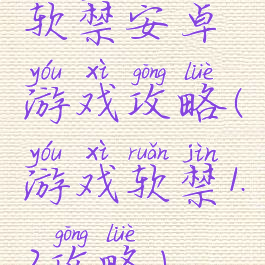 软禁安卓
yóu xì gōng lüè
游戏攻略(
yóu xì ruǎn jìn
游戏软禁1.
gōng lüè
2攻略)